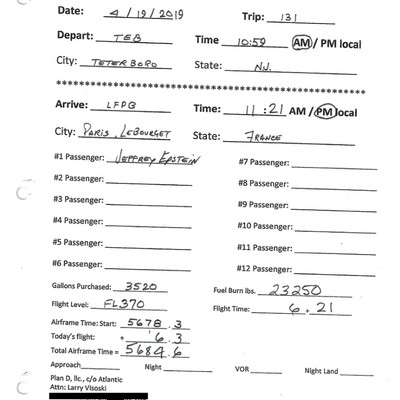 Date: 4/19/2019 Trip: 131
Depart: TEB Time 10:59 AM/ PM local
City: TETERBORO State: N.J.
************************************************
Arrive: LFPB Time: 11:21 AM / PM local
City: PARIS, LEBOURGET State: FRANCE
#1 Passenger: JEFFREY EPSTEIN #7 Passenger:
#2 Passenger: #8 Passenger:
#3 Passenger: #9 Passenger:
#4 Passenger: #10 Passenger:
#5 Passenger: #11 Passenger:
#6 Passenger: #12 Passenger:
Gallons Purchased: 3520 Fuel Burn lbs. 23250
Flight Level: FL370 Flight Time: 6.21
Airframe Time: Start: 5678.3
Today's flight: + 6.3
Total Airframe Time = 5684.6
Approach Night VOR Night Land
Plan D, llc, c/o Atlantic
Attn: Larry Visoski